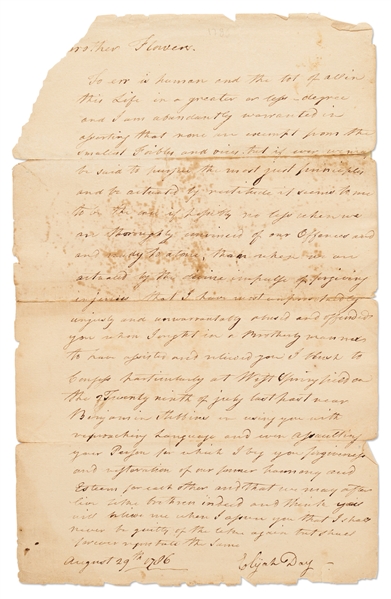 rother Flower.
To err is human and the lot of all in
this Life in a greater or less degree
and I am abundantly warranted in
asserting that none are exempt from the
smallest Foibles and vices, but if ever we
be said to the most just principles
and be actuated by rectitude it seems to me
to be the no less when we
are thoroughly convinced of our Offences and
and ready to atone, than when we are
actuated by the divine impulse of forgiving
injuries that I have most
unjustly and unwarrantably abused and offended
you when I ought in a Brotherly manner
to have assisted and relieved you I blush to
Confess particularly at West Springfield on
the Twenty ninth of July last past near
Benjamin Stebbins in using you with
reproaching Language and even assaulting
your Person for which I beg you forgiveness
and restoration of our former harmony and
Esteem for each other and that we may
live like brethren indeed and think you
will believe me when I assure you that I shall
never be guilty of the like again but shall
forever reprobate the Same
August 29th 1786 Elijah Day